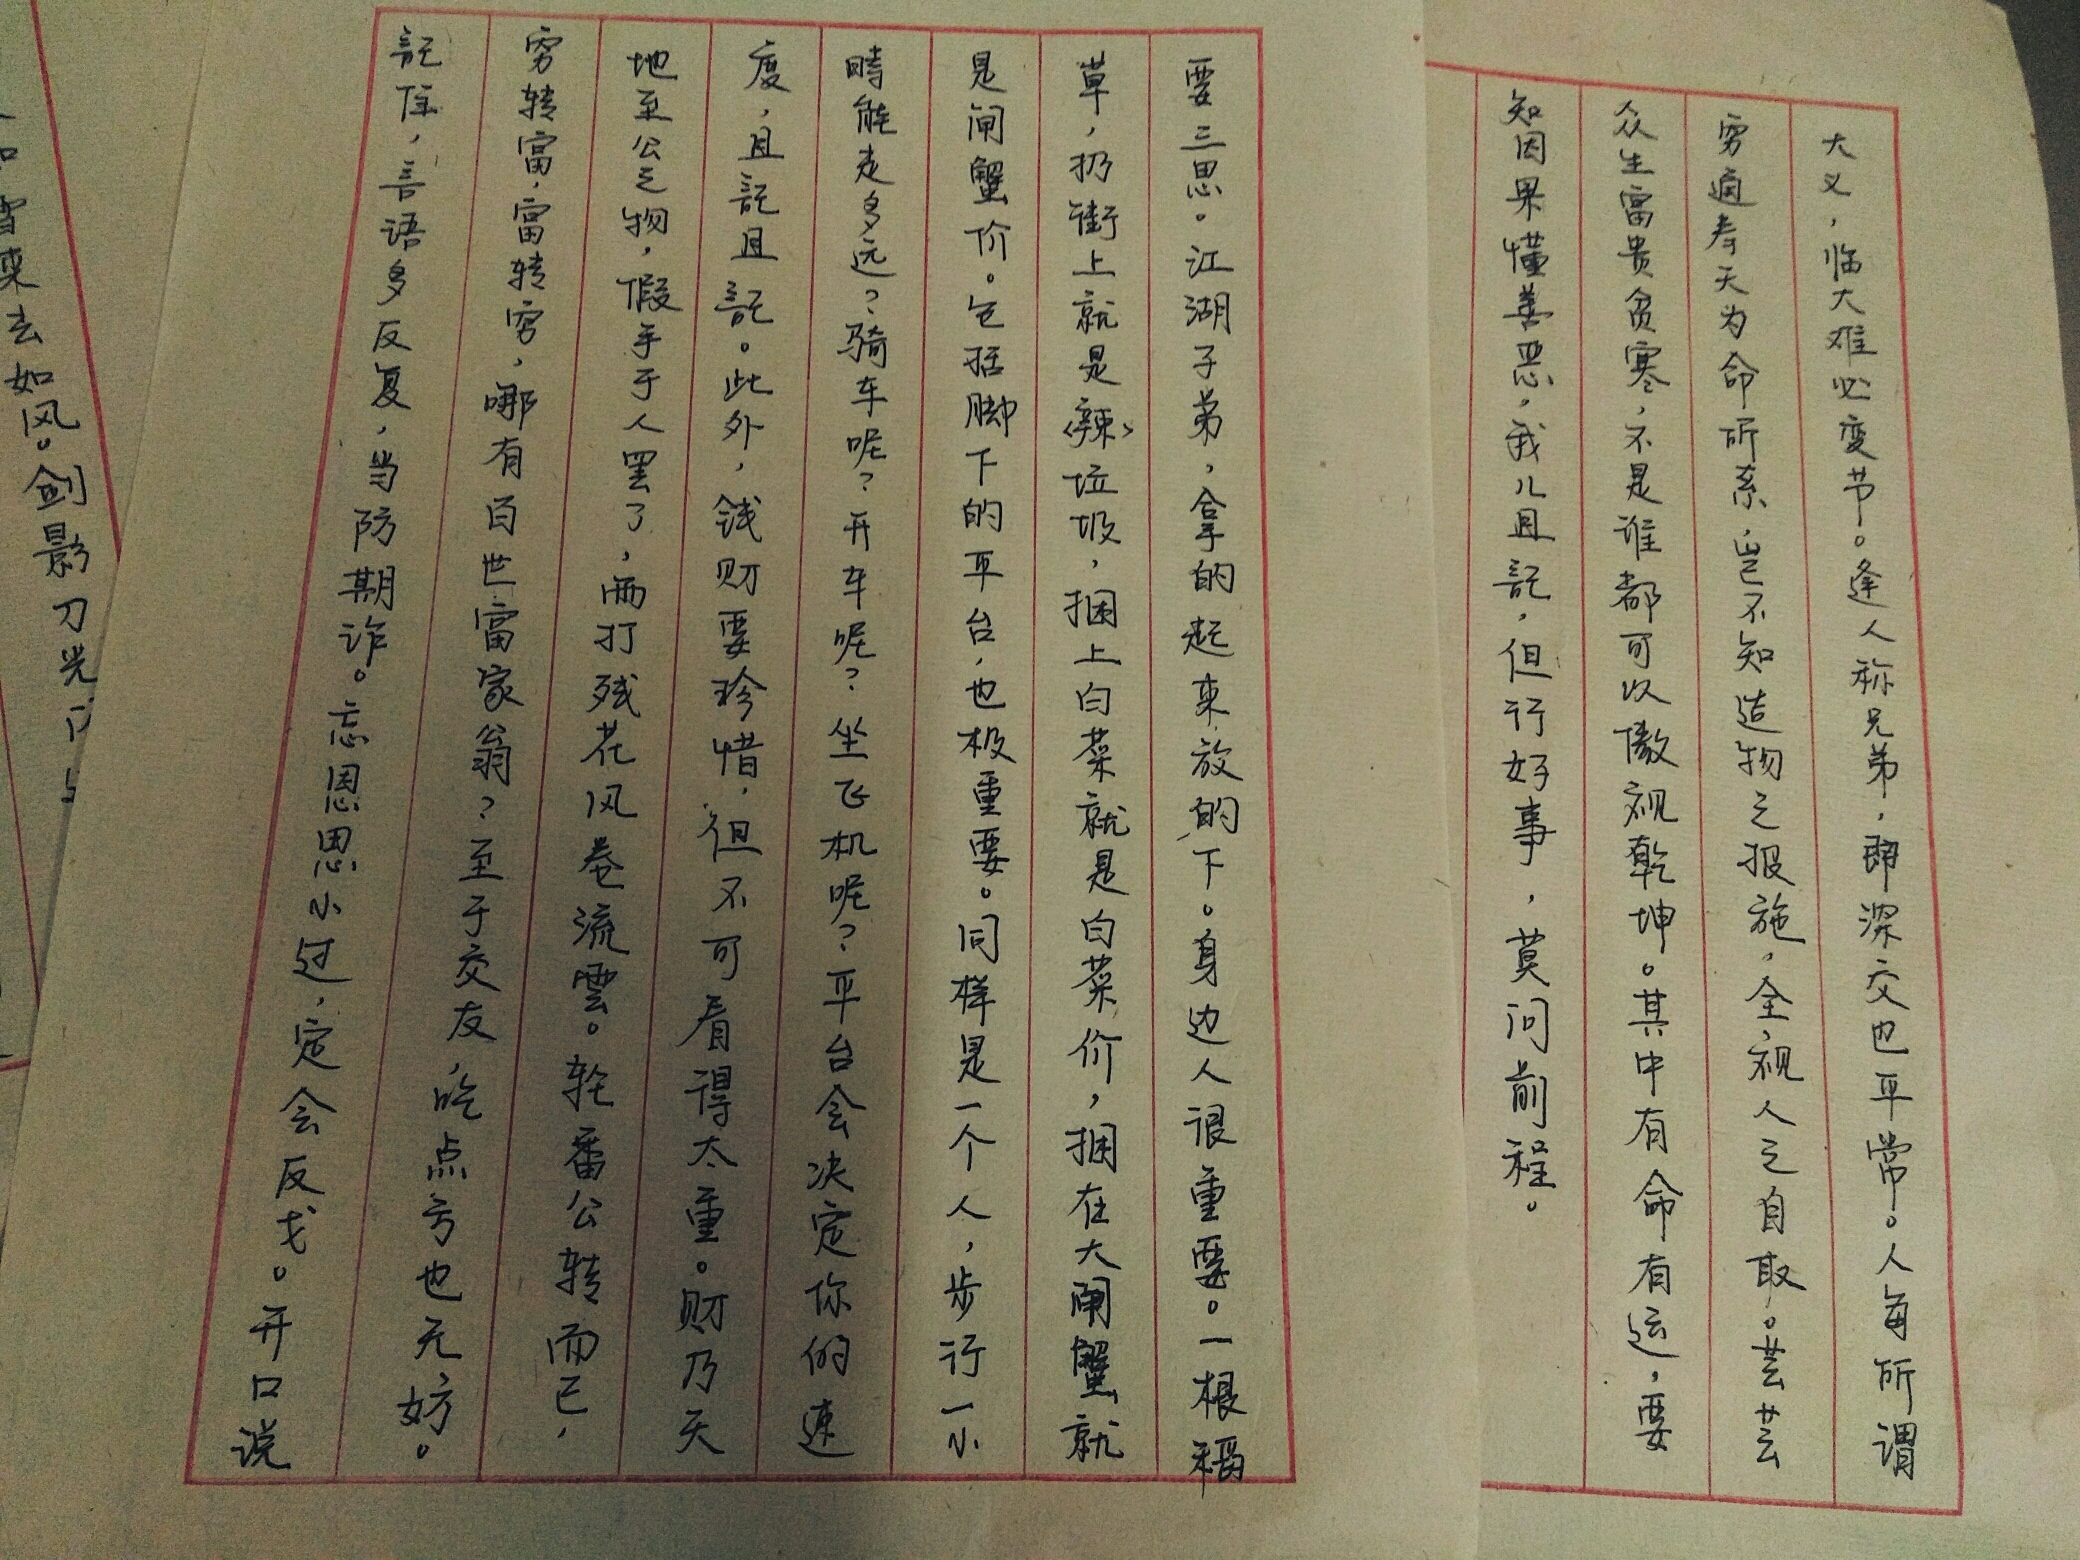 大义，临大难必变节。逢人称兄弟，即深交也平常。人每所谓
穷通寿夭为命所系，岂不知造物之报施，全视人之自取。芸芸
众生富贵贫寒，不是谁都可以傲视乾坤。其中有命有运，要
知因果懂善恶，我儿且記，但行好事，莫问前程。
要三思。江湖子弟，拿的起来，放的下。身边人很重要。一根稻
草，扔街上就是〈辣〉垃圾，捆上白菜就是白菜价，捆在大闸蟹就
是闸蟹价。包括脚下的平台，也极重要。同样是一个人，步行一小
時能走多远？骑车呢？开车呢？坐飞机呢？平台会决定你的速
度，且記且記。此外，钱财要珍惜，但不可看得太重。财乃天
地至公之物，假手于人罢了，雨打残花风卷流雲。轮番公转而已，
穷转富，富转穷，哪有百世富家翁？至于交友，吃点亏也无妨。
記住，言语多反复，当防期诈。忘恩思小过，定会反戈。开口说
来去如风。剑影刀光